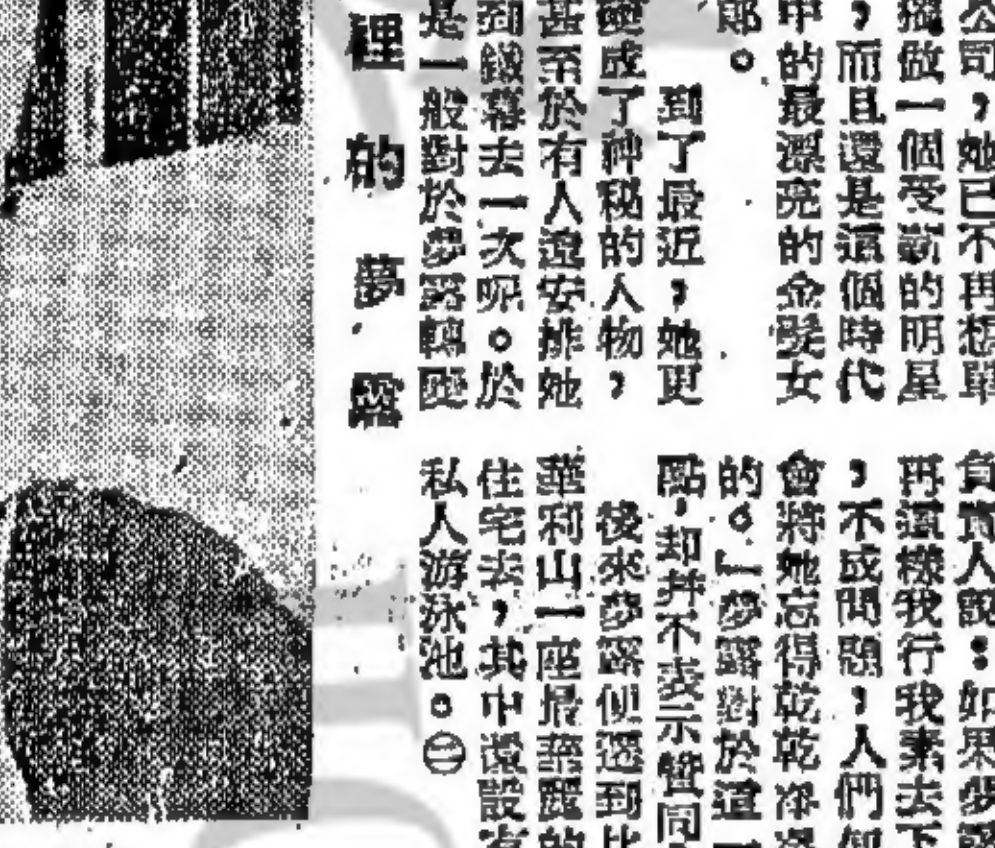 公司，她已不再想單
獨做一個受薪的明星
，而且還是這個時代
中的最漂亮的金髮女
郎。
到了最近，她更
變成了神秘的人物，
甚至於有人還安排她
到鐵幕去一次呢。於
是一般對於夢露轉變
負責人說：如果夢露
再這樣我行我素去下
，不成問題，人們
會將她忘得乾乾淨淨
的。」夢露對於這一
點，却并不表示贊同
後來夢露便遷到比
華利山一座最華麗的
住宅去，其中還設有
私人游泳池。㊁
裡的夢露